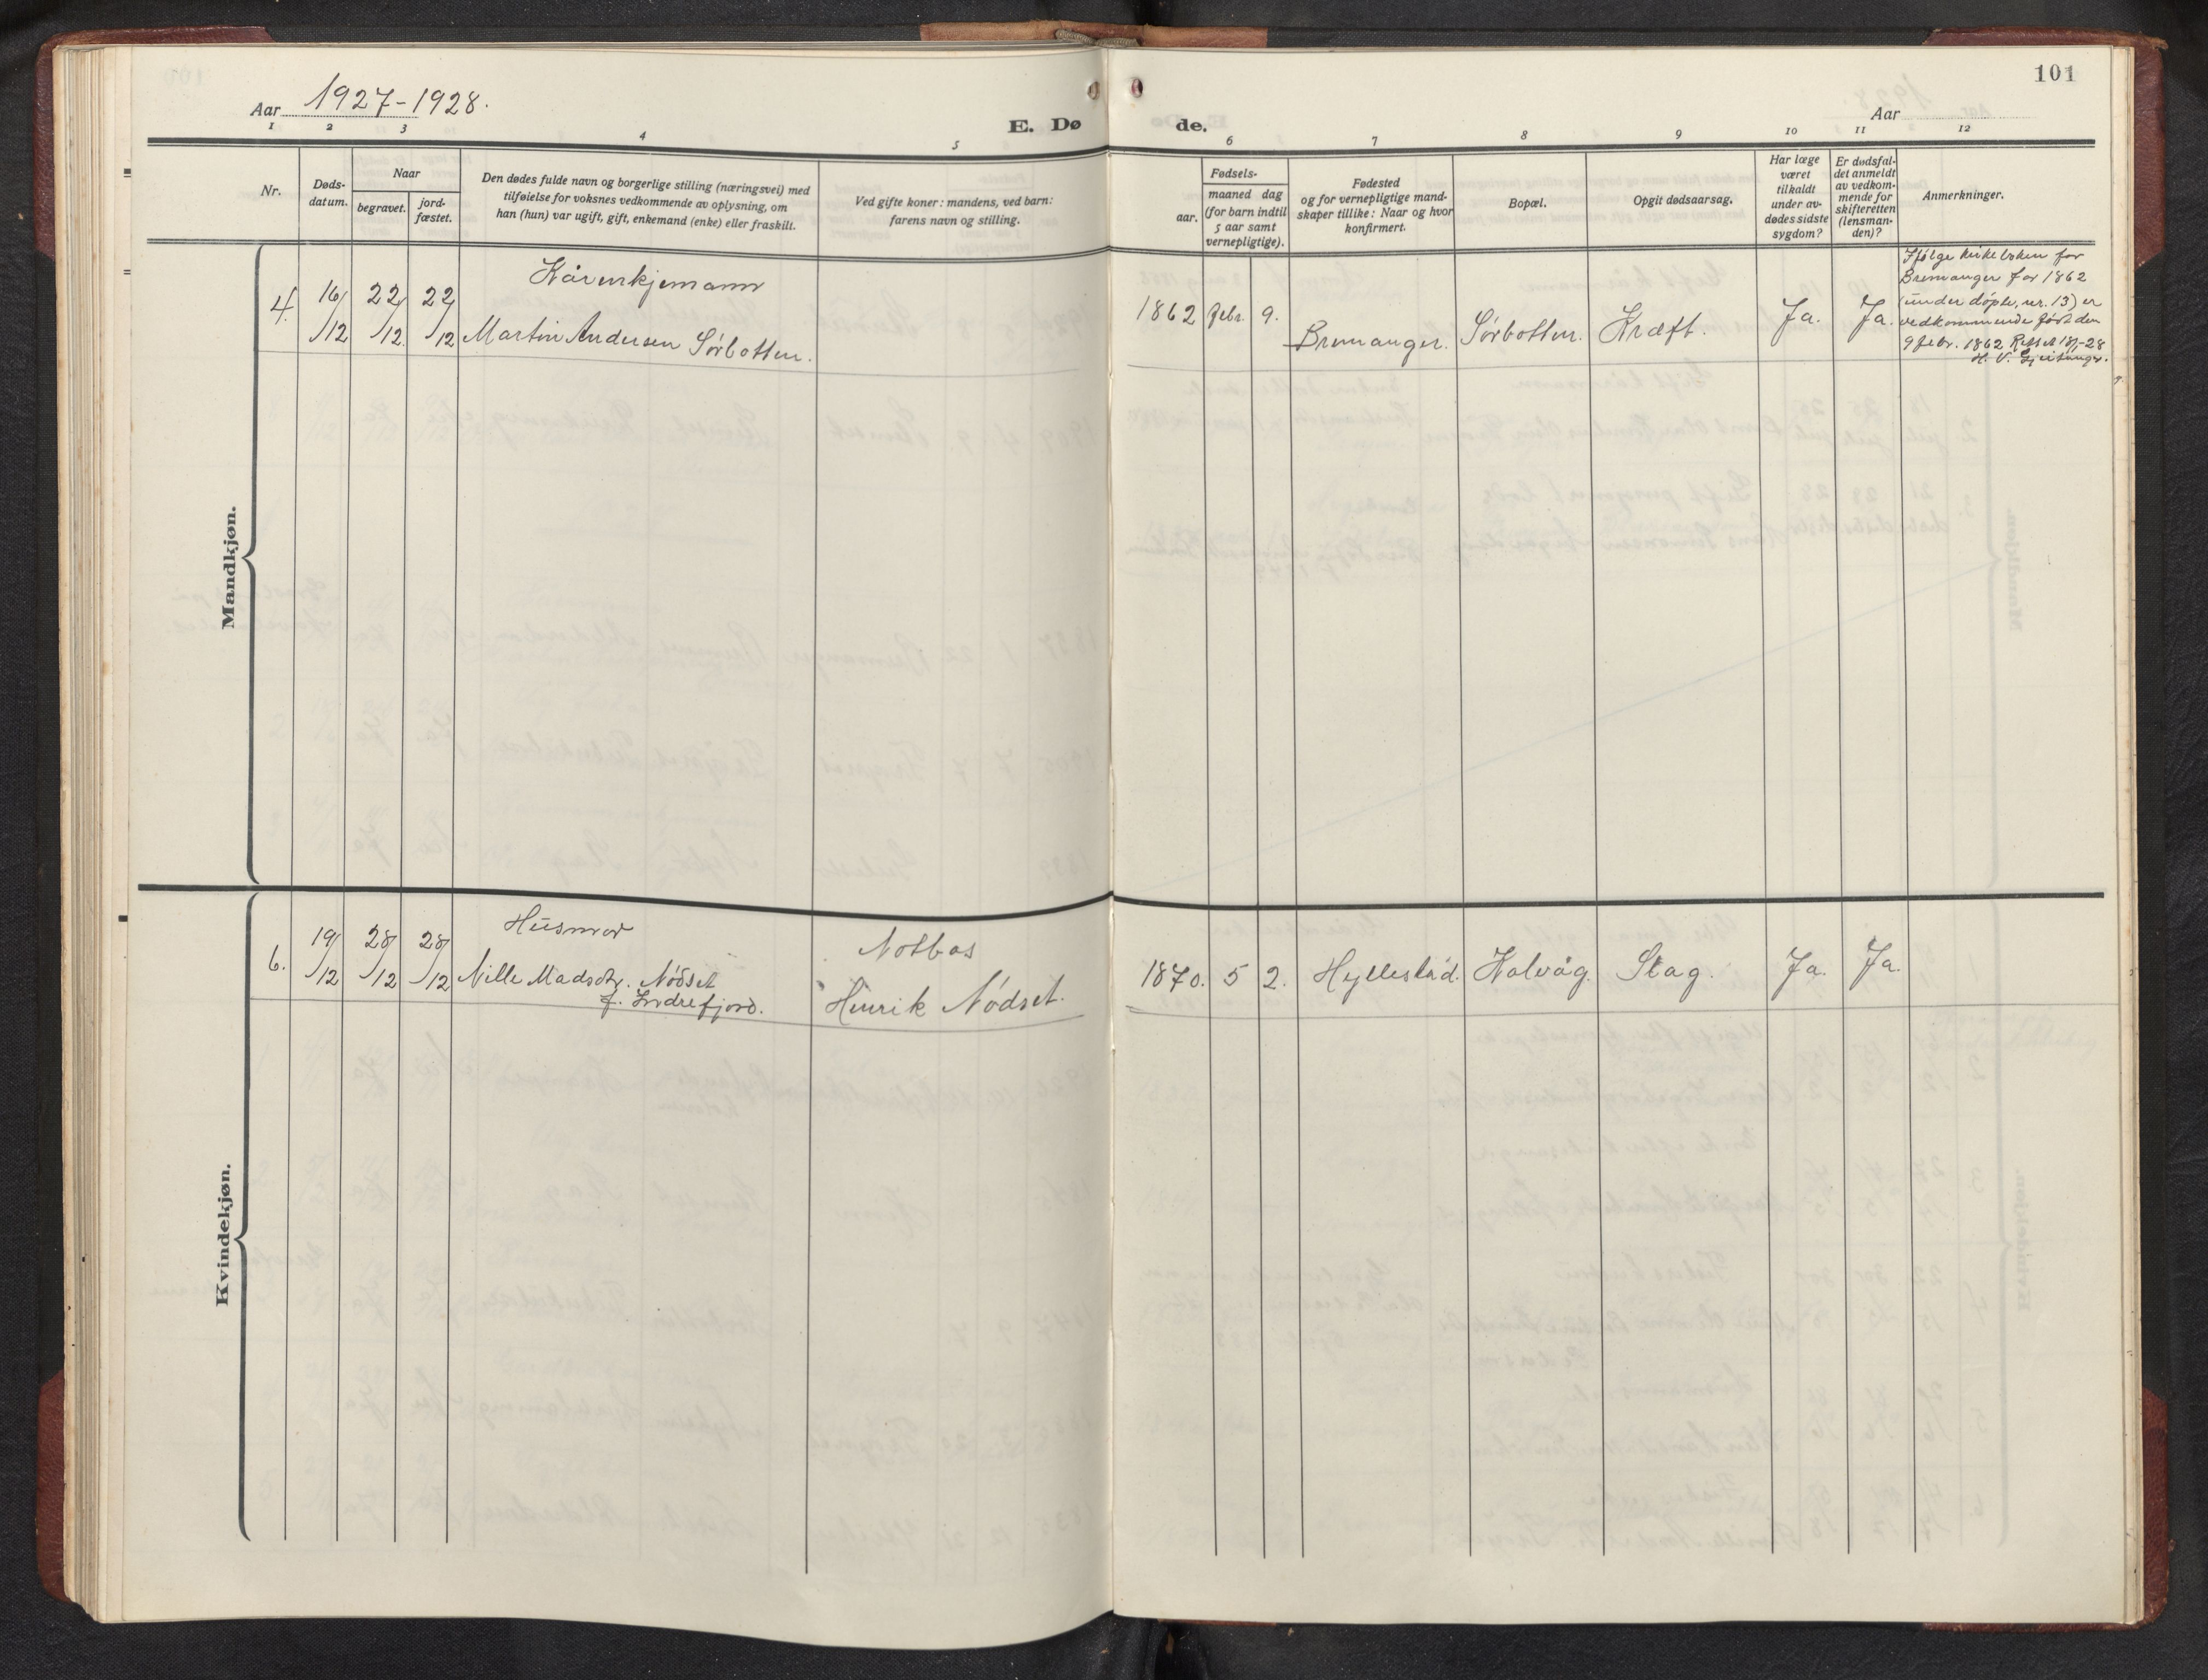 101
Aar 1927-1928.
E. Dø
de.
Aar
1 2 3 4 5 6 7 8 9 10 11 12
Nr.
Døds-
datum.
Naar
begravet.
jord-
fæstet.
Den dødes fulde navn og borgerlige stilling (næringsvei) med
tilføielse for voksnes vedkommende av oplysning, om
han (hun) var ugift, gift, enkemand (enke) eller fraskilt.
Ved gifte koner: mandens, ved barn:
farens navn og stilling.
Fødsels-
aar.
maaned dag
(for barn indtil
5 aar samt
vernepligtige).
Fødested
og for vernepligtige mand-
skaper tillike: Naar og hvor
konfirmert.
Bopæl.
Opgit dødsaarsag.
Har læge
været
tilkaldt
under av-
dødes sidste
sygdom?
Er dødsfal-
det anmeldt
av vedkom-
mende for
skifteretten
(lensman-
den)?
Anmerkninger.
Mandkjøn.
4. 16/12 22/12 22/12
Kårenkjemann
Martin Andersen Sørbotten.
1862 Febr. 9. Bremanger. Sørbotten. Kræft. Ja. Ja.
Ifølge kirkeboken for
Bremanger for 1862
(under døpte, nr. 13) er
vedkommende født den
9 febr. 1862
Kvindekjøn.
6. 19/12 28/12 28/12
Husmor
Nille Madsdtr. Nødset
f. Indrefjord.
Notbas
Henrik Nødset.
1870. 5 2. Hyllestad. Kalvåg. Slag. Ja. Ja.